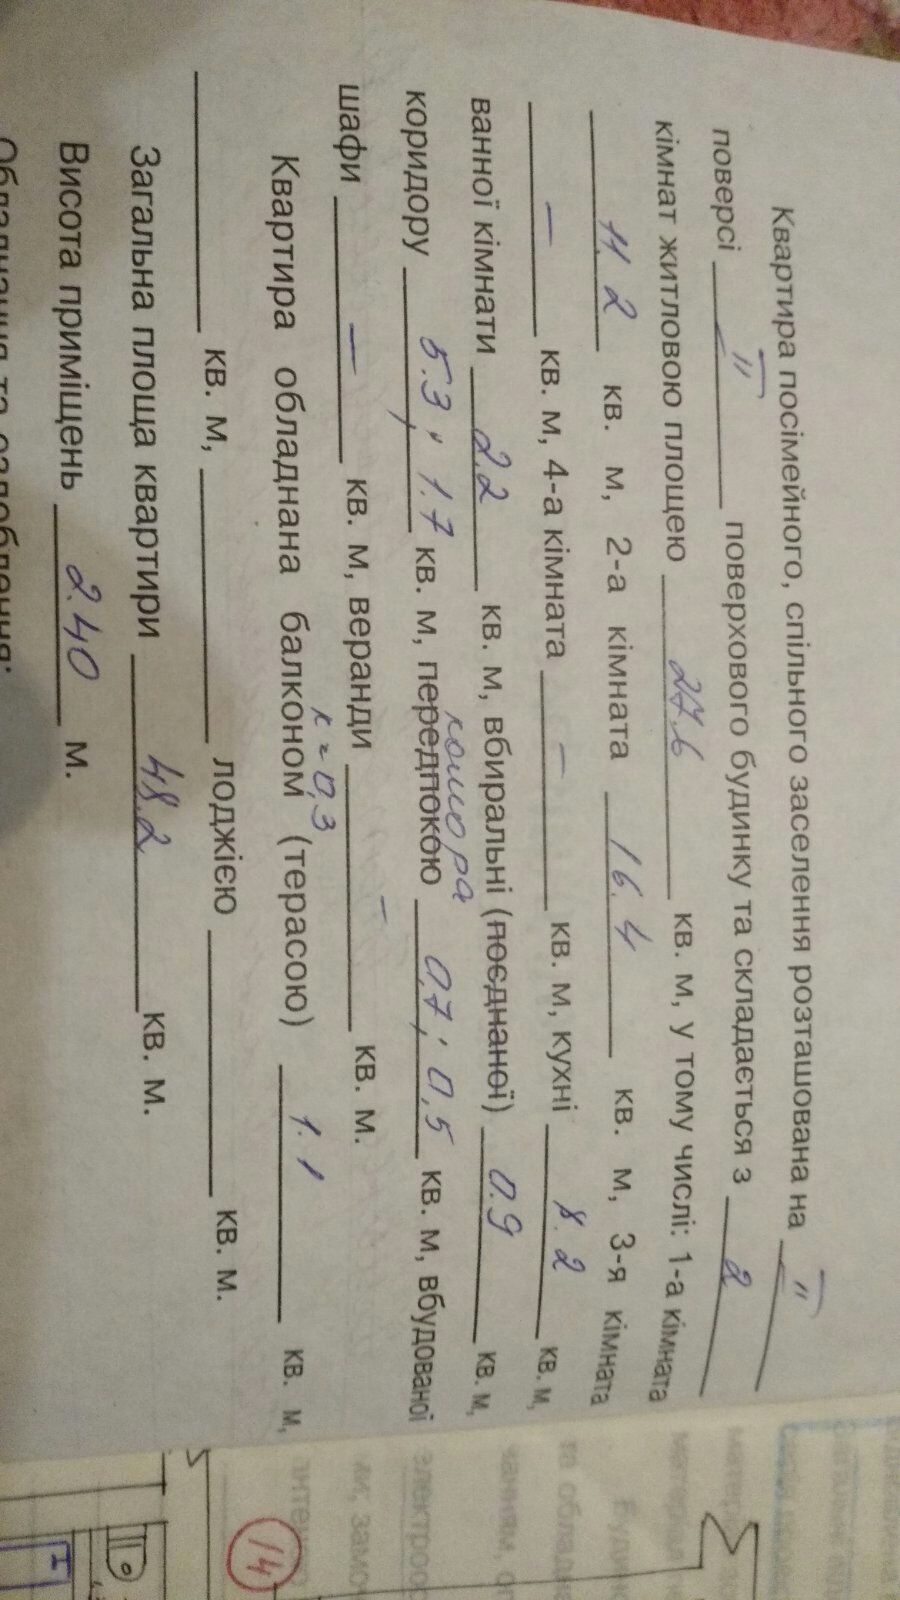 Квартира посімейного, спільного заселення розташована на II
поверсі II поверхового будинку та складається з 2
кімнат житловою площею 27.6 кв. м, у тому числі: 1-а кімната
11.2 кв. м, 2-а кімната 16.4 кв. м, 3-я кімната
— кв. м, 4-а кімната — кв. м, кухні 8.2 кв. м,
ванної кімнати 2.2 кв. м, вбиральні (поєднаної) 0.9 кв. м,
комора
коридору 5.3; 1.7 кв. м, передпокою 0,7; 0,5 кв. м, вбудованої
шафи — кв. м, веранди — кв. м.
к=0,3
Квартира обладнана балконом (терасою) 1.1 кв. м,
кв. м, лоджією кв. м.
Загальна площа квартири 48.2 кв. м.
Висота приміщень 2.40 м.
Обладнання та оздоблення:
14